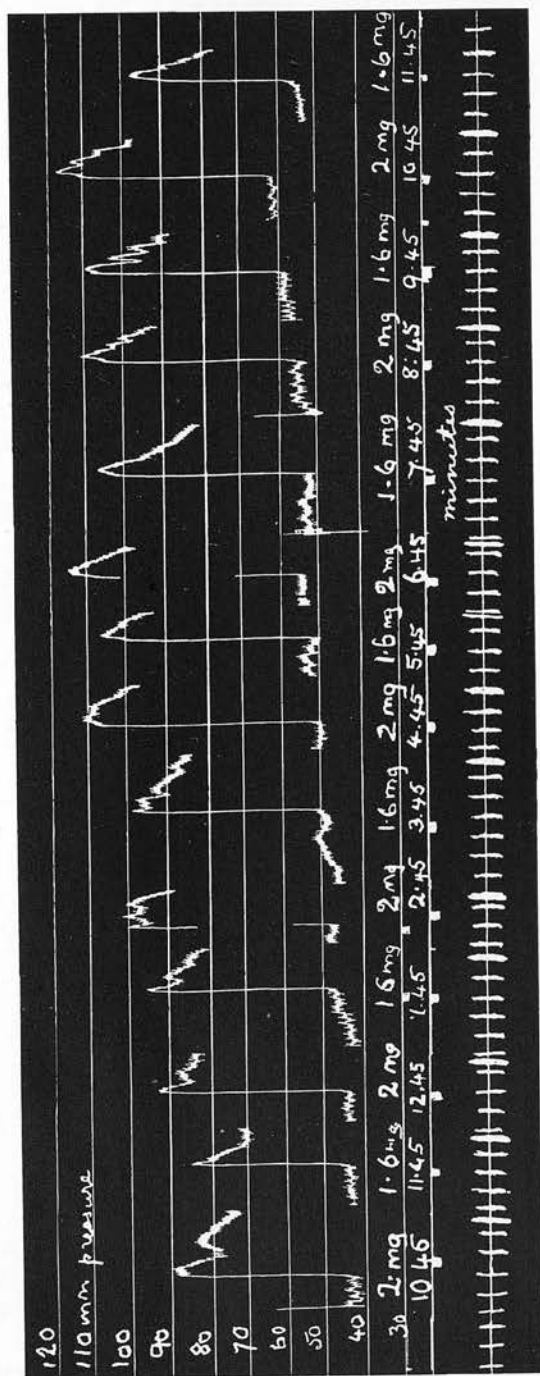 120
110 mm pressure
100
90
80
70
60
50
40
30
2. mg 1.6 mg 2 mg 1 6 mg 2 mg 1.6 mg 2 mg 1.6 mg 2 mg 1.6 mg 2 mg 1.6 mg 2 mg 1.6 mg
10 45 11.45 12.45 1.45 2.45 3.45 4.45 5.45 6.45 7.45 8.45 9.45 10.45 11.45
minutes